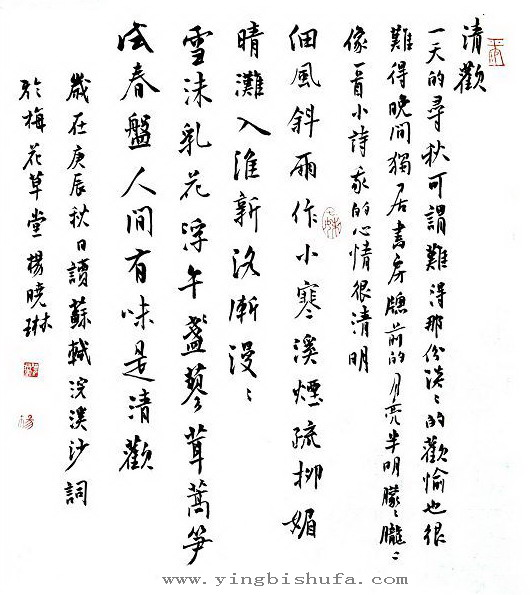 清歡
一天的尋秋可謂難得那份淡〻的歡愉也很
難得晚間獨居書房牕前的月亮半明朦〻朧〻
像一首小詩我的心情很清明
細風斜雨作小寒淡煙疏柳媚
晴灘入淮新洛漸漫〻
雪沫乳花浮午盞蓼茸蒿笋
試春盤人間有味是清歡
歲在庚辰秋日讀蘇軾浣溪沙詞
於梅花草堂楊曉琳
www.yingbishufa.com